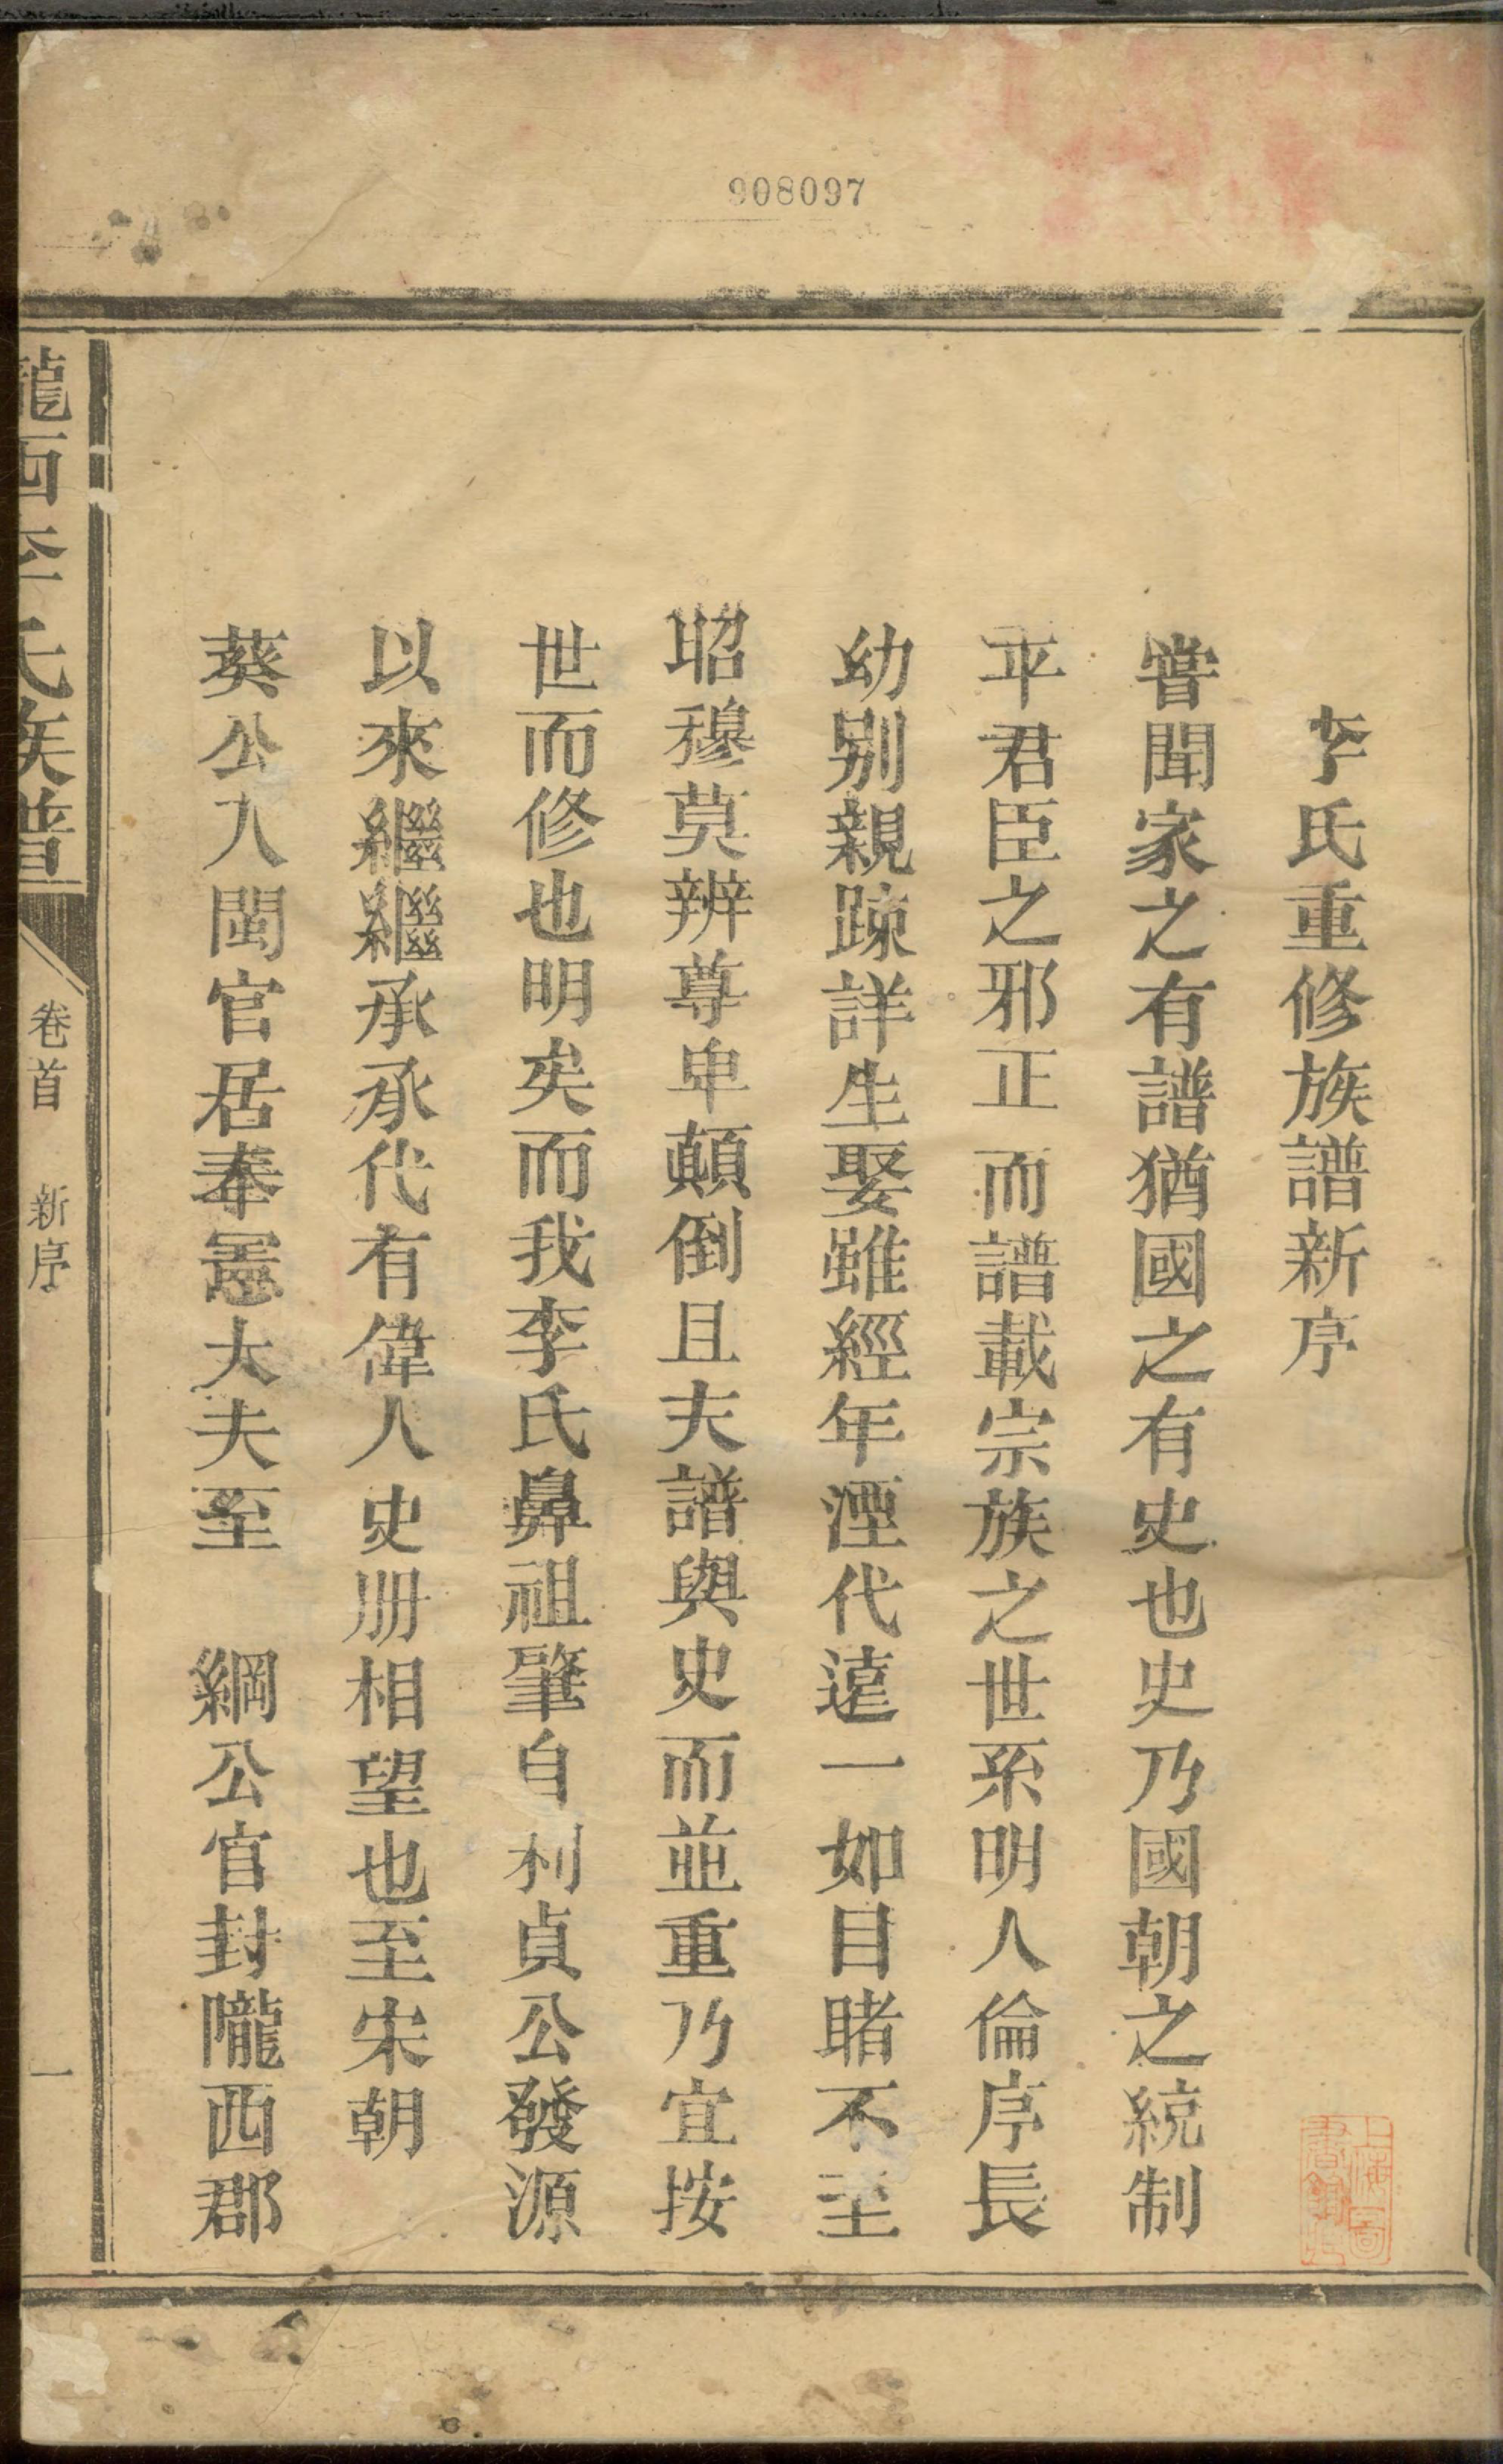 908097
李氏重修族譜新序
嘗聞家之有譜猶國之有史也史乃國朝之統制
平君臣之邪正而譜載宗族之世系明人倫序長
幼別親疎詳生娶雖經年湮代遠一如目睹不至
昭穆莫辨尊卑顛倒且夫譜與史而並重乃宜按
世而修也明矣而我李氏鼻祖肇自利貞公發源
以來繼繼承承代有偉人史册相望也至宋朝
葵公入閩官居奉憲大夫至　綱公官封隴西郡
隴西李氏族譜
卷首　新序
一
上海圖書館藏